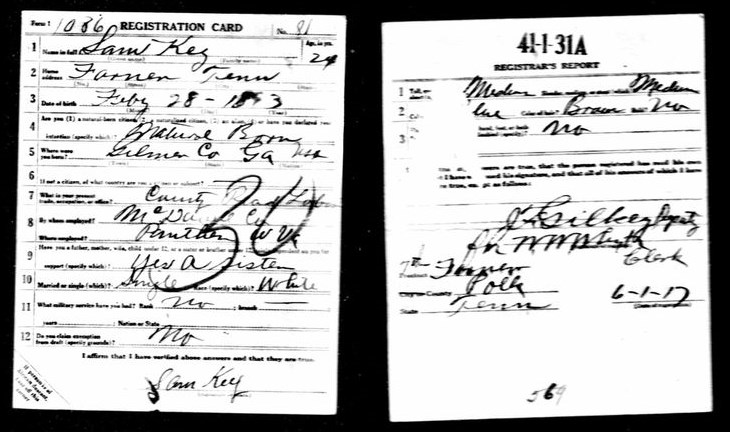 Form 1 1086 REGISTRATION CARD No. 81
1 Name in full Sam Key Age, in yrs. 24
(Given name) (Family name)
2 Home address Farner Tenn
(No.) (Street) (City) (State)
3 Date of birth Feby 28 - 1893
(Month) (Day) (Year)
4 Are you (1) a natural-born citizen, (2) a naturalized citizen, (3) an alien, (4) or have you declared your
intention (specify which)? Natural Born
5 Where were you born? Gilmer Co Ga USA
(Town) (State) (Nation)
6 If not a citizen, of what country are you a citizen or subject?
7 What is your present trade, occupation, or office? County Road
8 By whom employed? Co
Where employed? Panther W Va
9 Have you a father, mother, wife, child under 12, or a sister or brother under 12, solely dependent on you for
support (specify which)? Yes A Sister
10 Married or single (which)? Single Race (specify which)? White
11 What military service have you had? Rank No ; branch
years ; Nation or State
12 Do you claim exemption from draft (specify grounds)? No
I affirm that I have verified above answers and that they are true.
Sam Key
If person is of African descent, tear off this corner
41-1-31A
REGISTRAR'S REPORT
1 Tall, Medium Slender, medium, or stout (which)? Medium
2 Color of hair? Brown Bald? No
3 hand, foot, or both
No
are true, that the person registered has read his own
I have witnessed his signature, and that all of his answers of which I have
true, except as follows:
J Gilkey Deputy
for
Clerk
Precinct Farner
City or County Polk
State Tenn 6-1-17
(Date of registration)
569